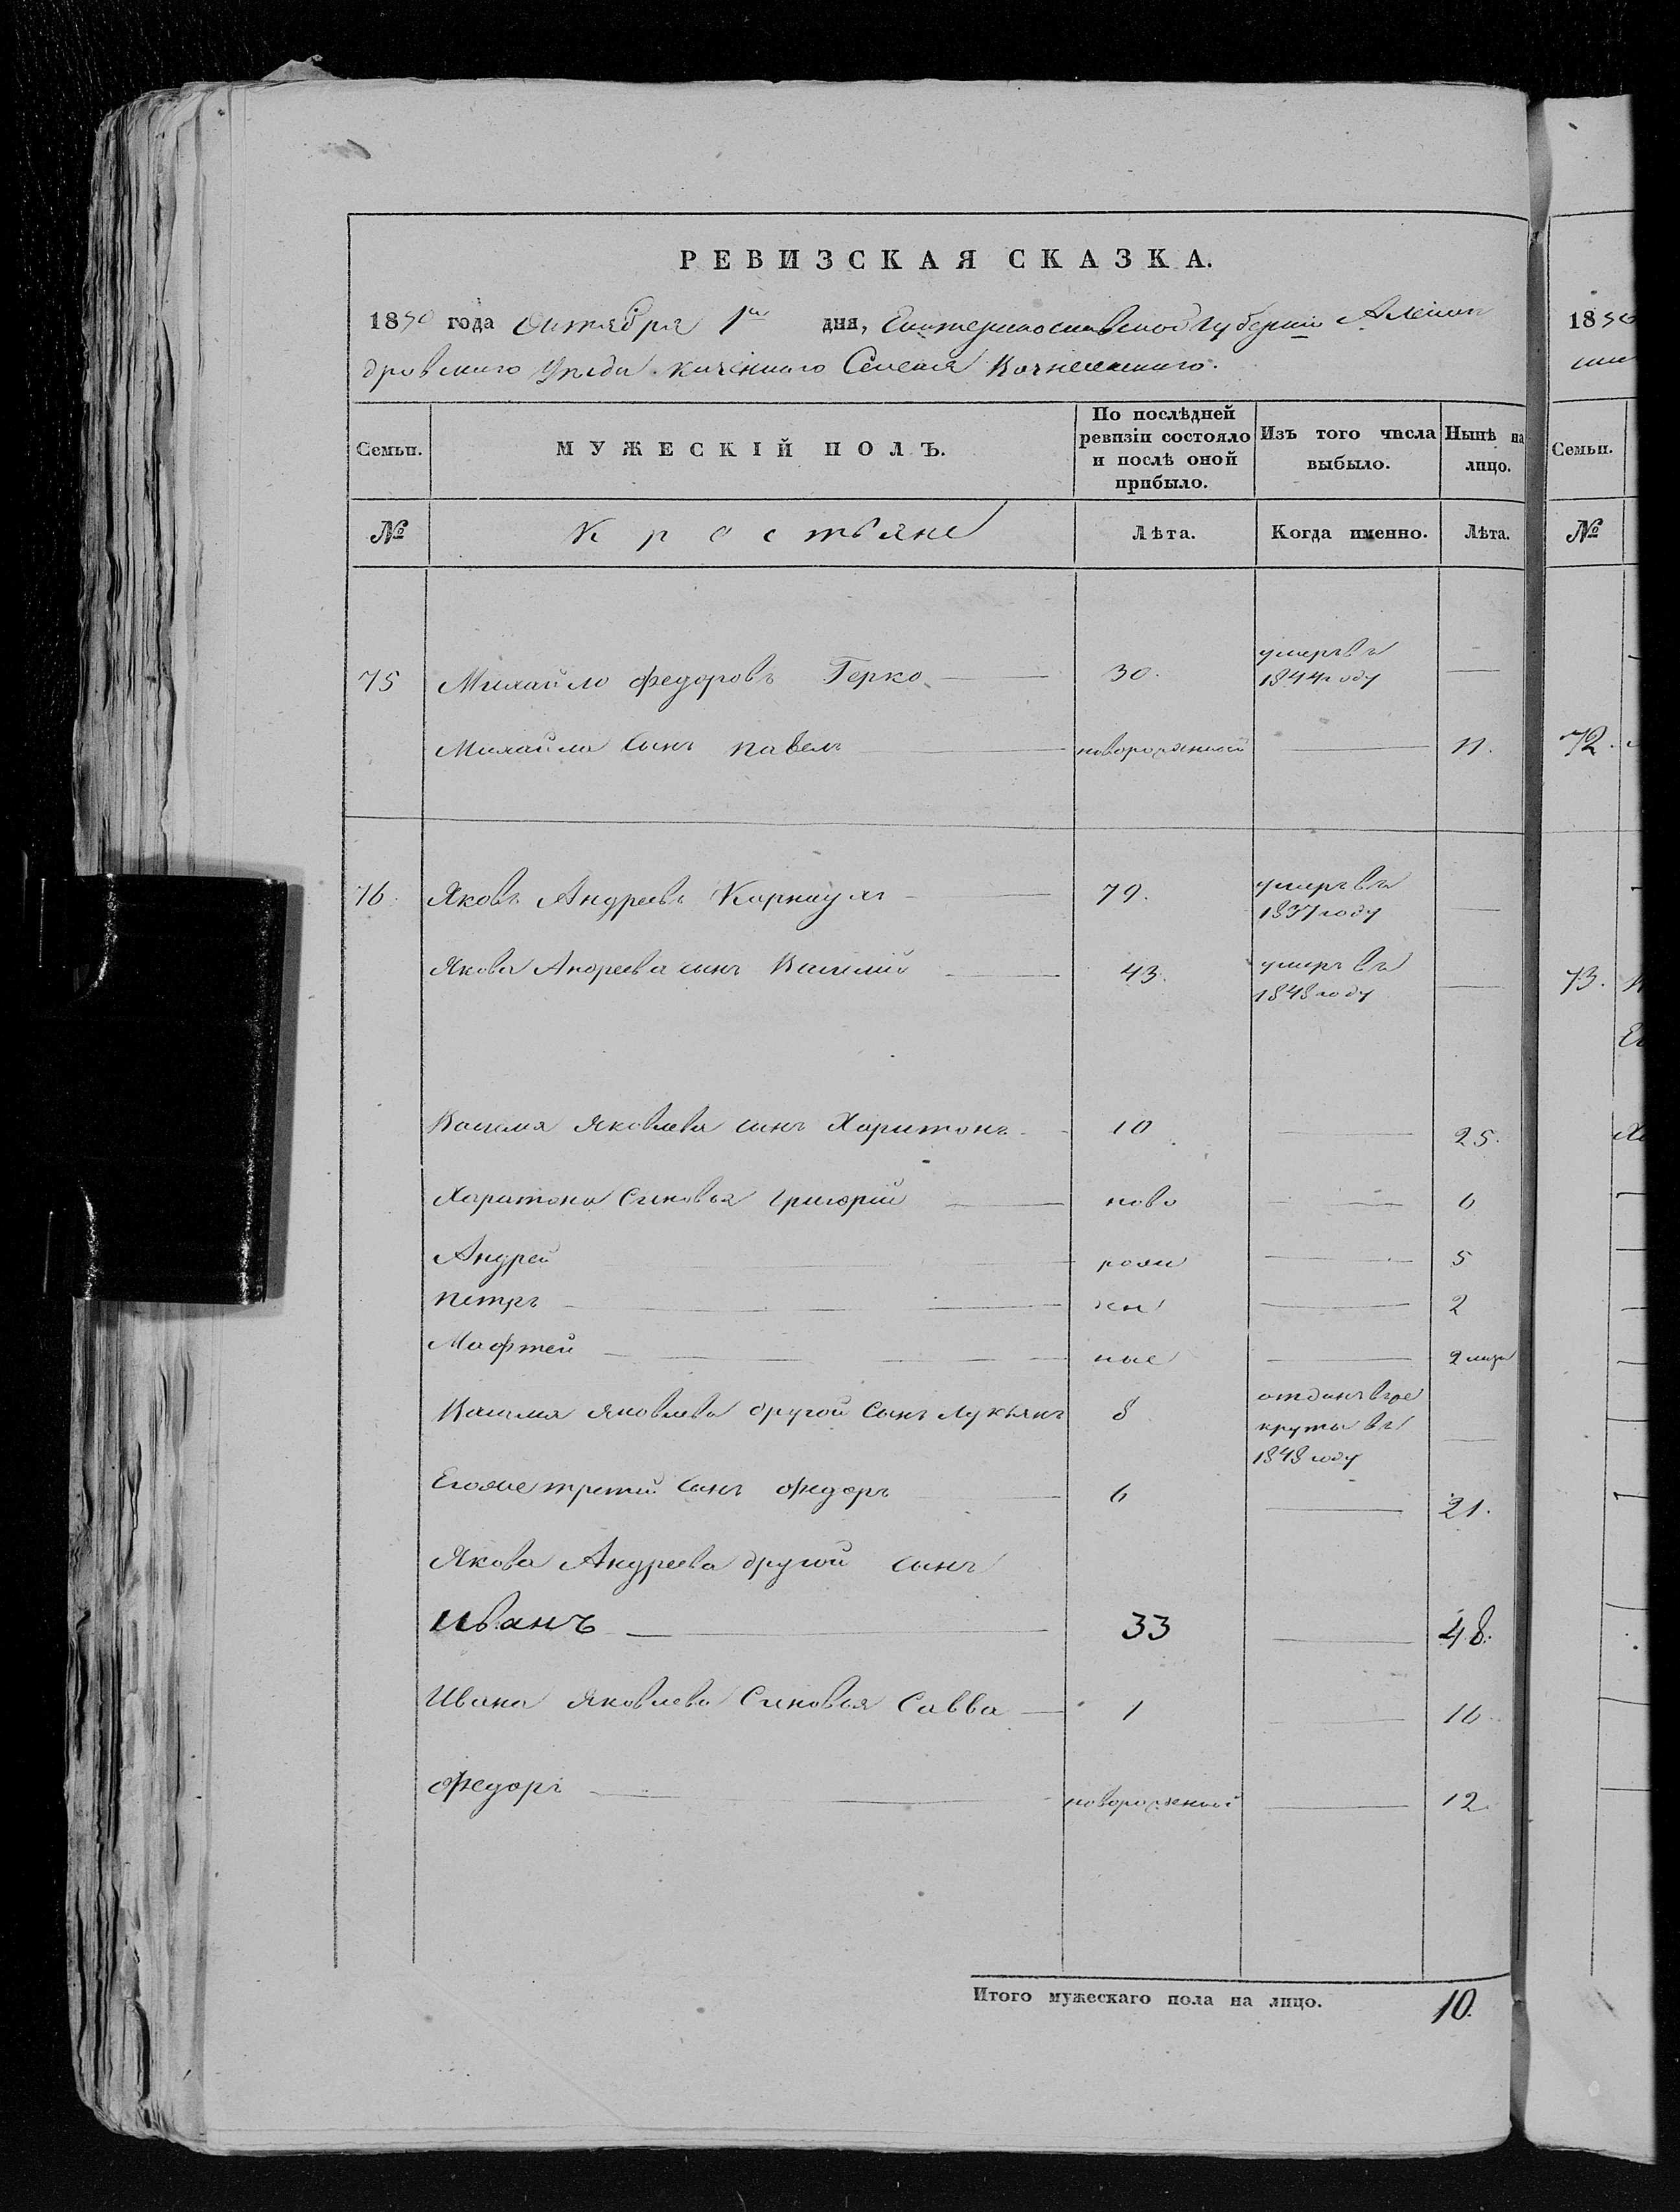 РЕВИЗСКАЯ СКАЗКА.
1850 года Октября 1го дня, Екатеринославской губернии Алексан
дровского Уезда казенного Селения Вознесенского.
Семьи. МУЖЕСКІЙ ПОЛЪ. По послѣдней ревизіи состояло и послѣ оной прибыло. Изъ того числа выбыло. Нынѣ на лицо.
№ Крестьяне Лѣта. Когда именно. Лѣта.
75 Михайло Федоровъ Герко 30. умеръ въ 1844 году
Михайла сынъ Павелъ новорожденный 11.
76. Яковъ Андреевъ Карнаухъ 79. умеръ въ 1837 году
Якова Андреева сынъ Василий 43. умеръ въ 1848 году
Василия Яковлева сынъ Харитонъ 10 25.
Харитона Сыновья Григорий ново 6
Андрей рож 5
Петръ ден 2
Мафтей ные 2 меся
Василия Яковлева другой Сынъ Лукьянъ 8 отданъ в ре
круты въ
1848 году
Егоже третий сынъ Федоръ 6 21.
Якова Андреева другой сынъ
Иванъ 33 48.
Ивана Яковлева Сыновья Савва 1 16.
Федоръ новорожденный 12
Итого мужескаго пола на лицо. 10.
1850
Семьи.
№
72.
73.